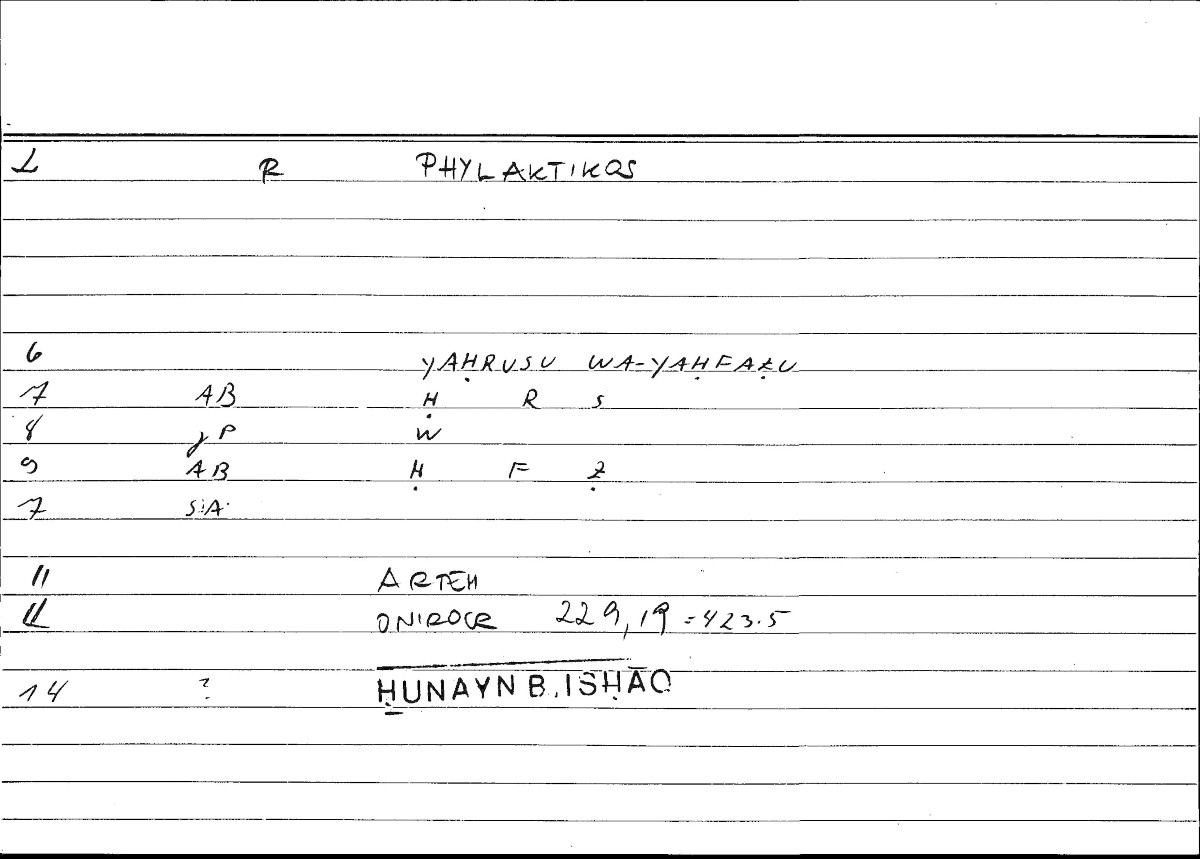 1 R PHYLAKTIKOS
6 YAḤRUSU WA-YAḤFAẒU
7 AB Ḥ R S
8 γP W
9 AB Ḥ F Ẓ
7 SA
11 ARTEM
12 ONIROCR 229,19 = 423.5
14 ? ḤUNAYN B. ISḤĀQ